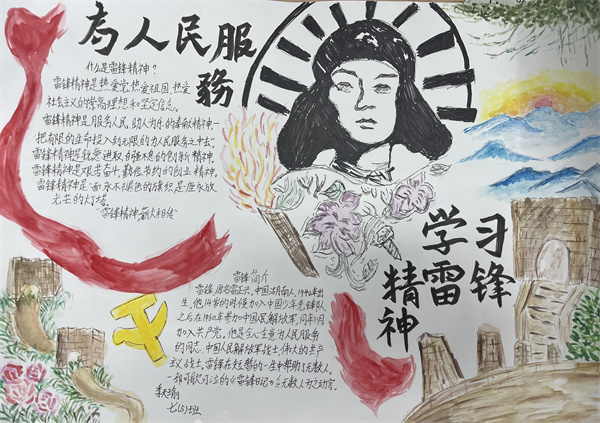 为人民服
務
什么是雷锋精神?
雷锋精神是热爱党,热爱祖国,热爱
社会主义的崇高理想和坚定信念。
雷锋精神是服务人民,助人为乐的奉献精神一
把有限的生命投入到无限的为人民服务之中去"
雷锋精神是锐意进取,自强不息的创新精神
雷锋精神是艰苦奋斗,勤俭节约的创业精神。
雷锋精神是一面永不褪色的旗帜是座永放
光芒的灯塔。
雷锋精神薪火相传
学习
雷锋
精神
雷锋简介
雷锋,原名雷正兴,中国湖南人,1940年出
生,他14岁的时候加入中国少年先锋队
之后在1960年参加中国人民解放军,同年11月
加入共产党。他是全心全意为人民服务
的同志,中国人民解放军战士,伟大的共产
主义战士,雷锋在短暂的一生中帮助了无数人。
一部可歌可泣的《雷锋日记》令无数人为之动容。
七(5)班